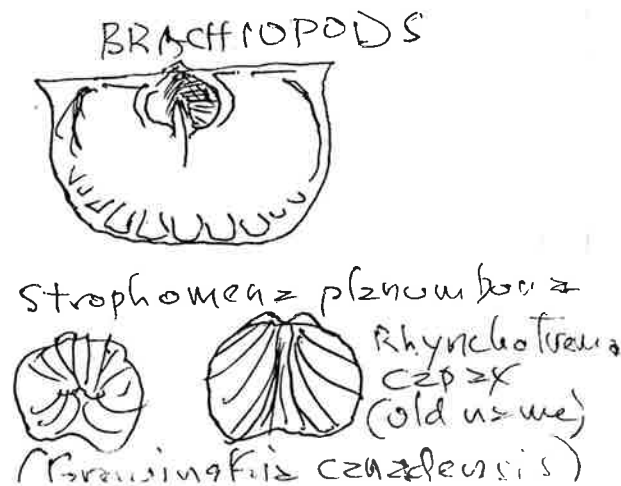 BRACHIOPODS
Strophomena planumbona
Rhynchotrema
capax
(old name)
(Grewingkia canadensis)